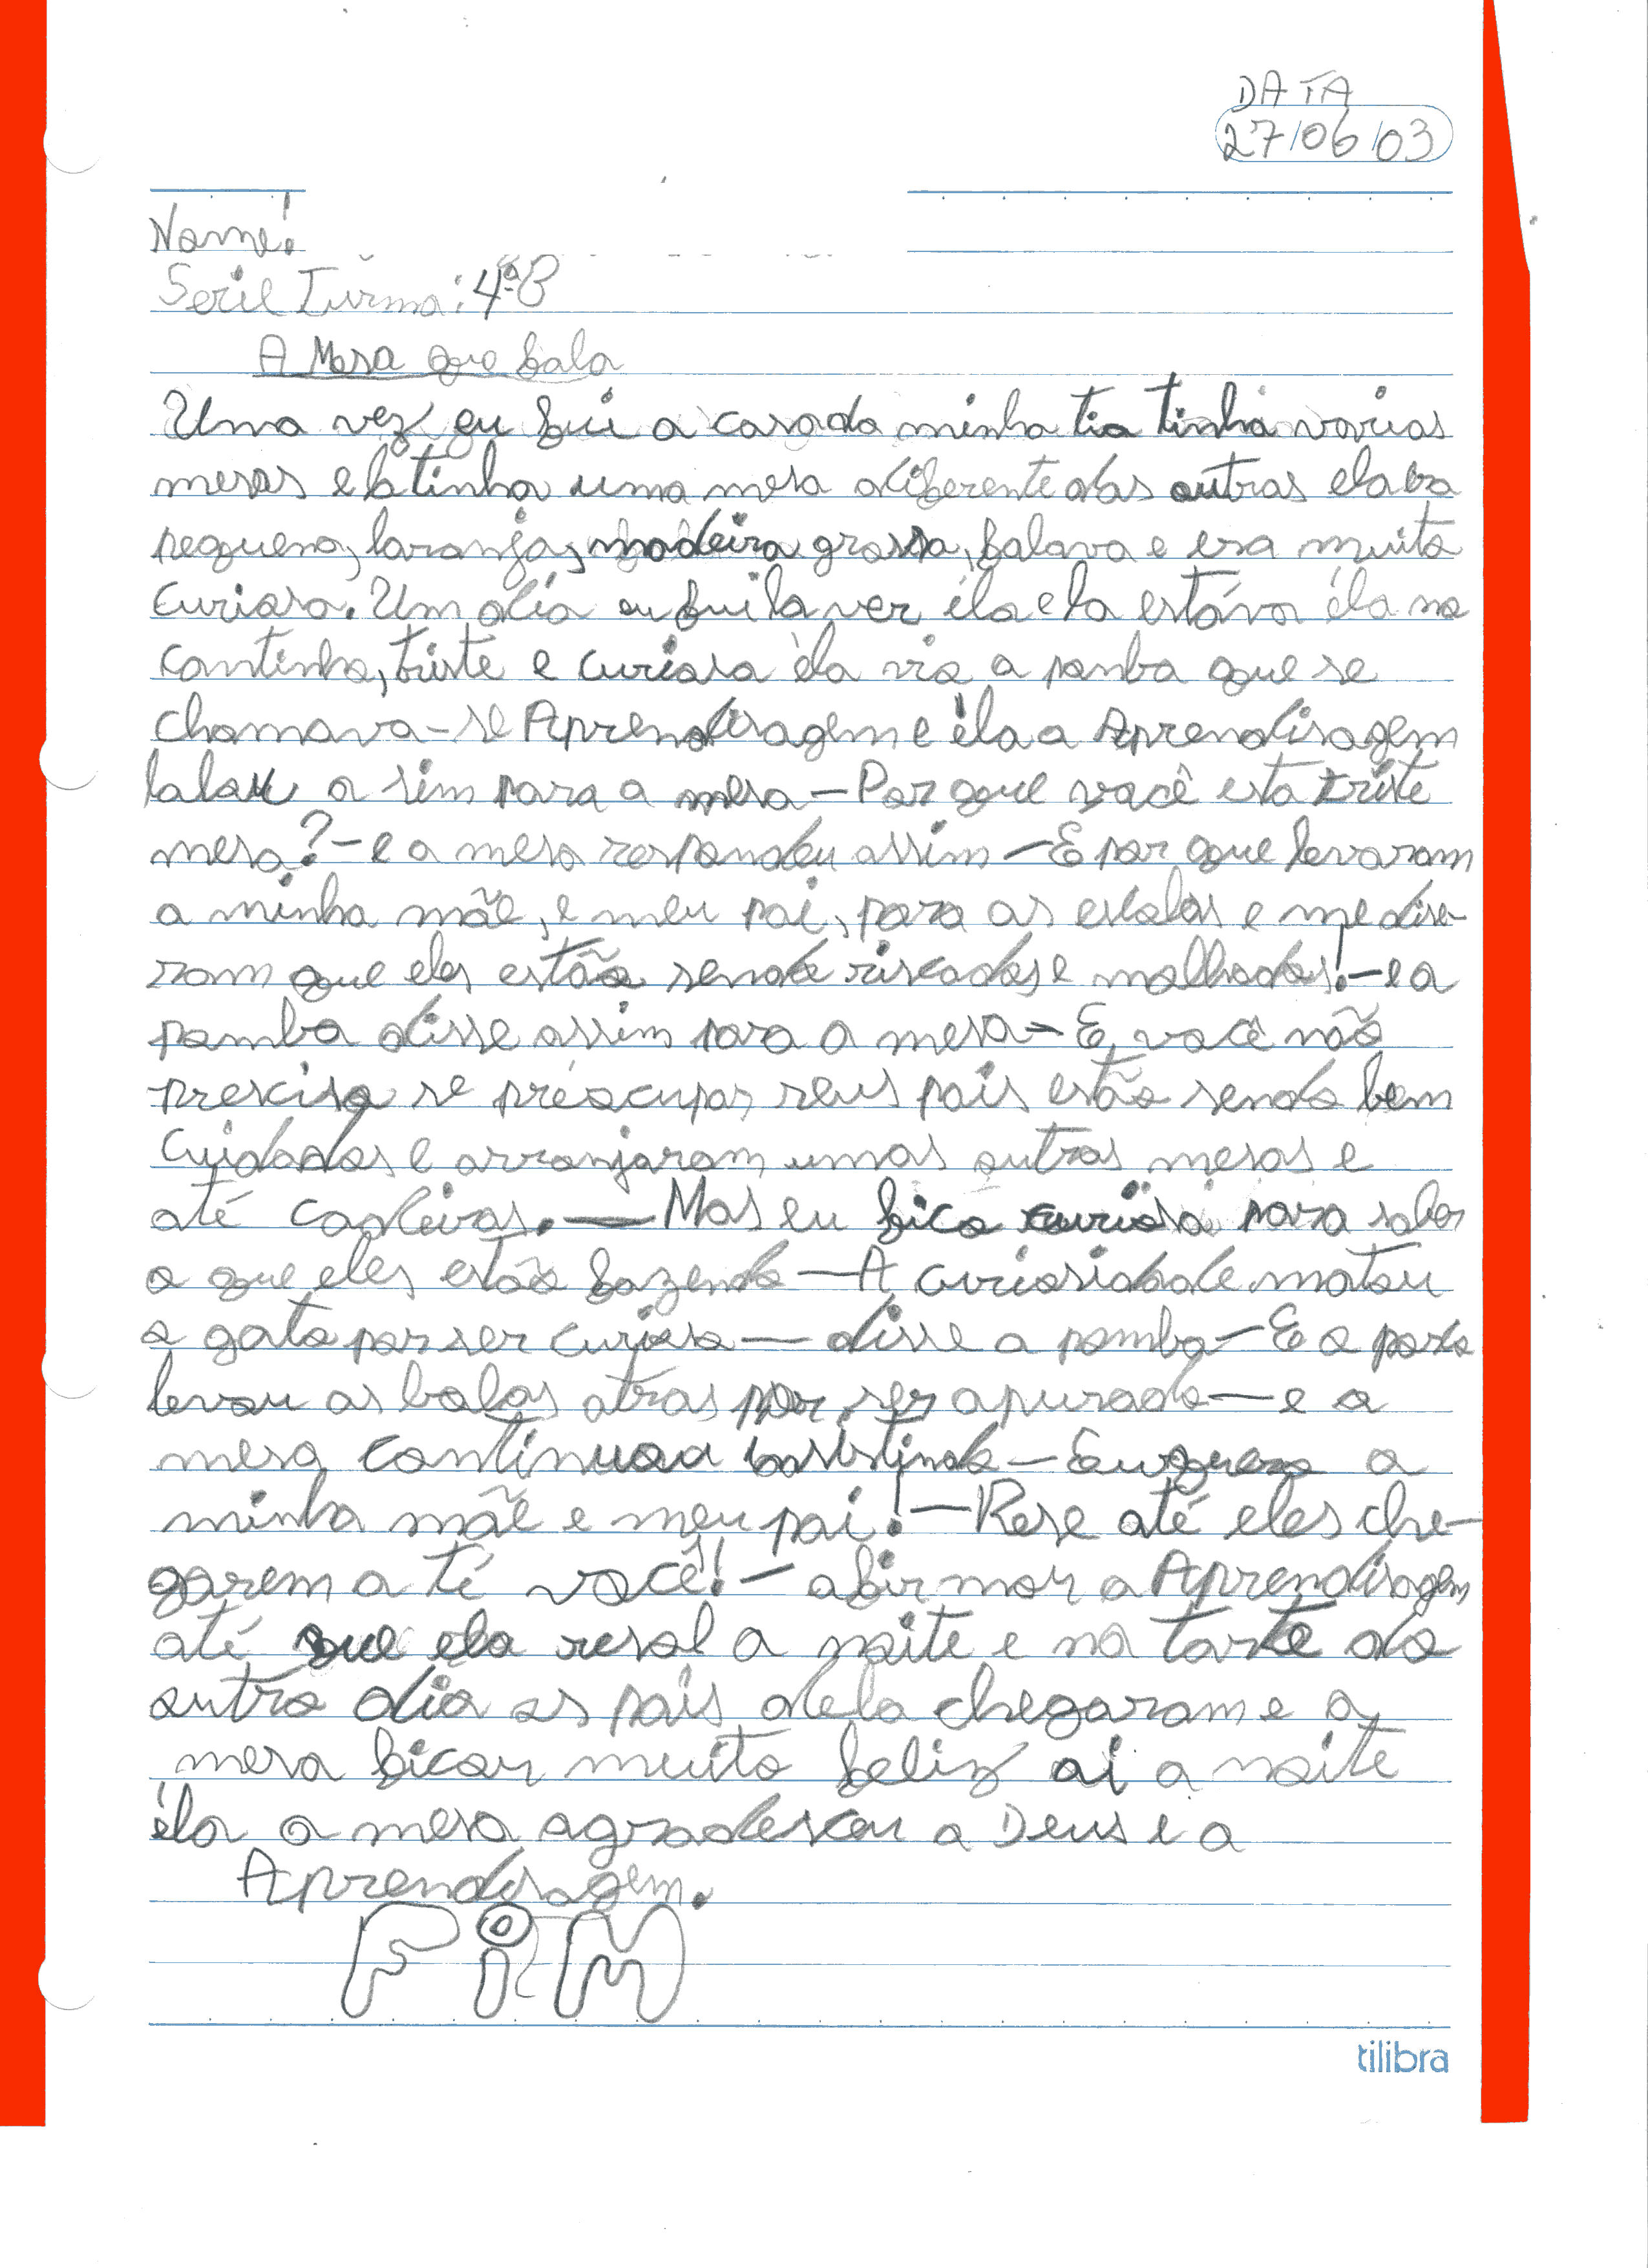 DATA
27/06/03
Nome:
Serie Turma: 4ªB
A Mesa que fala
Uma vez eu fui a casa da minha tia tinha varias
mesas ela tinha uma mesa diferente das outras ela era
pequena, laranja, madeira grossa, falava e era muito
curiosa. Um dia eu fui la ver éla ela estáva éla no
cantinho, triste e curiosa éla via a pomba que se
chamava-se Aprendisagem e éla a Aprendisagem
falou a sim para a mesa - Por que você esta triste
mesa? - e a mesa respondeu assim - E por que levaram
a minha mãe, e meu pai, para as escolas e me dise-
ram que eles estão sendo riscados e malhados! - e a
pomba disse assim para a mesa - E, você não
presciso se préocupar seus pais estão sendo bem
cuidados e arranjaram umas outras mesas e
até cadeiras. - Mas eu fico curiosa para saber
o que eles estão fazendo - A curiosidade matou
o gato por ser curioso - disse a pomba - E o porco
levou as balas atras por ser apurado - e a
mesa continuou insistindo - Eu quero a
minha mãe e meu pai! - Rese até eles che-
garem a té você! - afirmou a Aprendisagem
até que ela resol a noite e na tarte do
outro dia os pais dela chegaram e a
mesa ficou muito feliz ai a noite
éla a mesa agradesceu a Deus e a
Aprendisagem.
FiM
tilibra